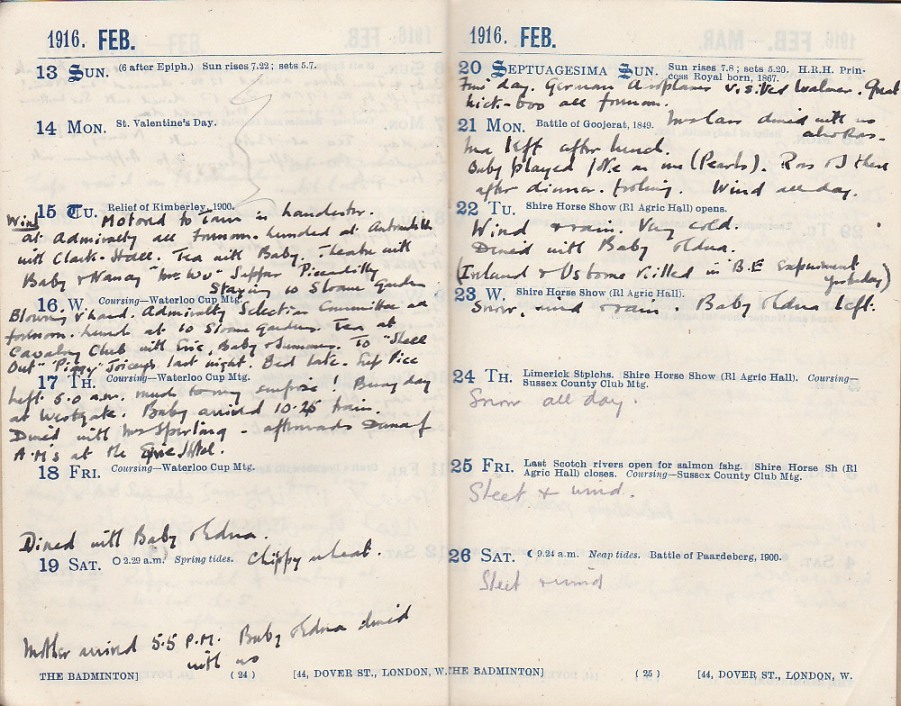 1916. FEB.
13 SUN. (6 after Epiph.) Sun rises 7.22; sets 5.7.
14 MON. St. Valentine's Day.
15 TU. Relief of Kimberley, 1900.
Wind Motored to Town in Lanchester.
at Admiralty all forenoon. Lunched at
with Clark-Hall. Tea with Baby. Theatre with
Baby & Nancy "Mr. Wu" Supper Piccadilly
Staying 10 Sloane Gardens
16 W Coursing—Waterloo Cup Mtg.
Blowing & hard. Admiralty Selection Committee all
forenoon. Lunch at 10 Sloane Gardens. Tea at
Cavalry Club with Eric, Baby & . To "Shell
Out" "Piggy" Joiceys last night. Bed late. Left Picc
17 TH. Coursing—Waterloo Cup Mtg.
Left 5.0 a.m. much to my surprise! Busy day
at Westgate. Baby arrived 10.25 train.
Dined with Mrs Sperling - afterwards
A.M's at the Hotel.
18 FRI. Coursing—Waterloo Cup Mtg.
Dined with Baby & Edna.
19 SAT. 2.29 a.m. Spring tides. Chippy wheat.
Mother arrived 5.5 P.M. Baby & Edna dined
with us
THE BADMINTON] (24) [44, DOVER ST., LONDON, W.
1916. FEB.
20 SEPTUAGESIMA SUN. Sun rises 7.8; sets 5.20. H.R.H. Prin-
cess Royal born, 1867.
Fine day. German Aeroplanes visited Walmer. Great
hick-boo all forenoon.
21 MON. Battle of Goojerat, 1849. dined with us
also Ros.
Ma left after lunch.
Baby played (Pearls). Ros & I there
after dinner. . Wind all day.
22 TU. Shire Horse Show (Rl Agric Hall) opens.
Wind & rain. Very cold.
Dined with Baby & Edna.
(Ireland & Usborne visited in B.E experiment
yesterday)
23 W. Shire Horse Show (Rl Agric Hall).
Snow, wind & rain. Baby & Edna left.
24 TH. Limerick Stplchs. Shire Horse Show (Rl Agric Hall). Coursing—
Sussex County Club Mtg.
Snow all day.
25 FRI. Last Scotch rivers open for salmon fshg. Shire Horse Sh (Rl
Agric Hall) closes. Coursing—Sussex County Club Mtg.
Sleet & wind.
26 SAT. 9.24 a.m. Neap tides. Battle of Paardeberg, 1900.
Sleet & wind
THE BADMINTON] (25) [44, DOVER ST., LONDON, W.